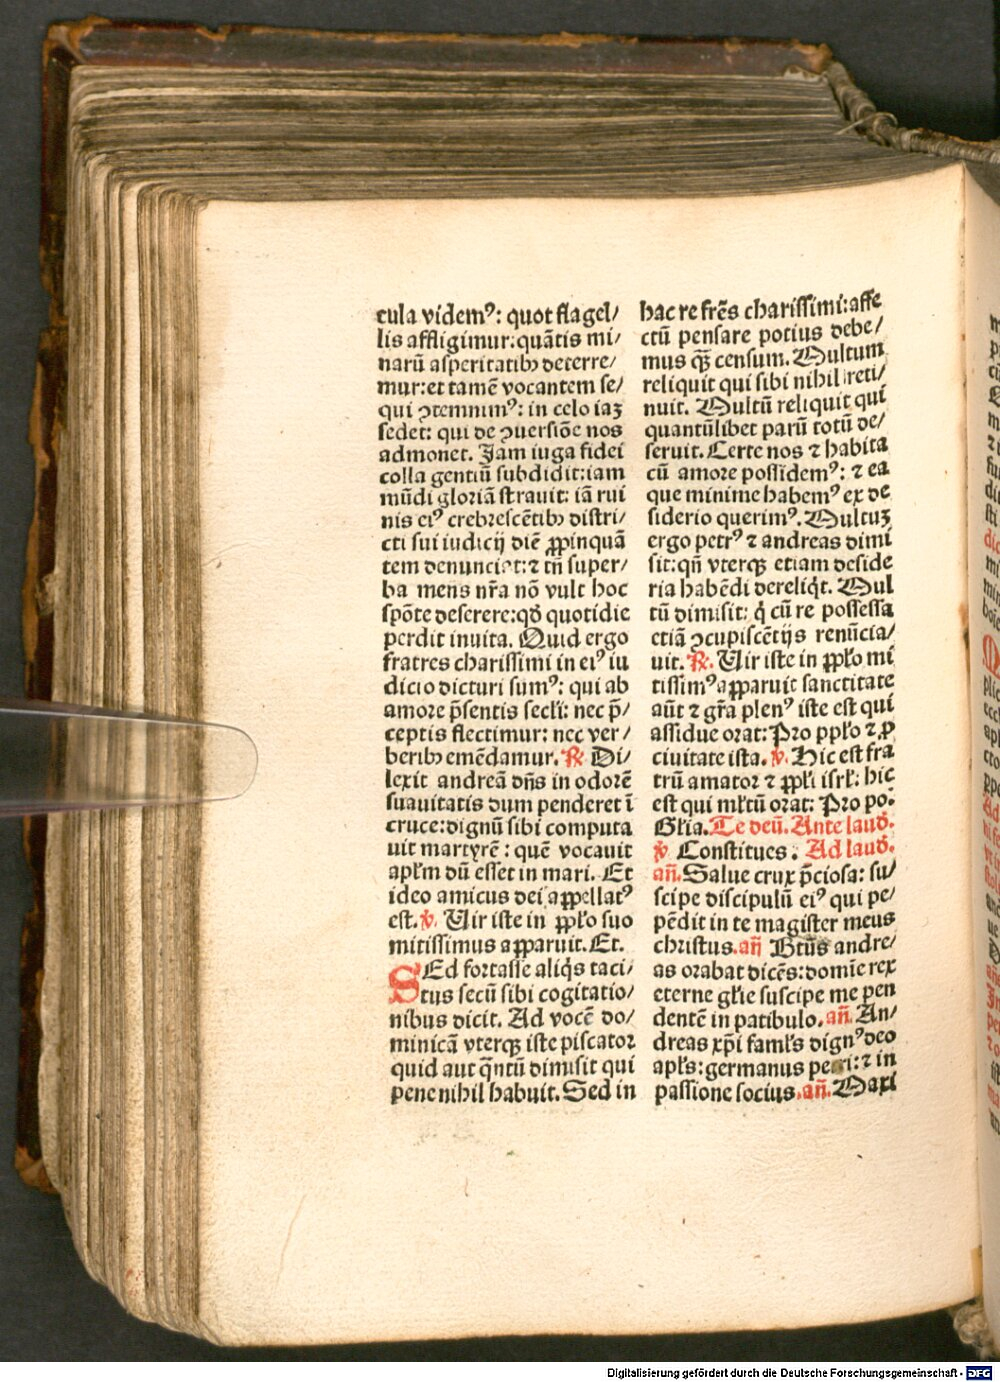 cula videmꝰ: quot flagel/
lis affligimur: quātis mi/
narū asperitatibꝫ deterre/
mur: et tamē vocantem se/
qui ꝯtemnimꝰ: in celo iaꝫ
sedet: qui de ꝯuersiōe nos
admonet. Iam iuga fidei
colla gentiū subdidit: iam
mūdi gloriā strauit: iā rui
nis eiꝰ crebrescētibꝫ distri/
cti sui iudicij diē ꝓpinquā
tem denunciat: ⁊ tn̄ super/
ba mens nr̄a nō vult hoc
spōte deserere: qd̄ quotidie
perdit inuita. Quid ergo
fratres charissimi in eiꝰ iu
dicio dicturi sumꝰ: qui ab
amore p̄sentis secl̄i: nec p̄/
ceptis flectimur: nec ver/
beribꝫ emēdamur. ℟. Di/
lexit andreā dn̄s in odorē
suauitatis dum penderet ī
cruce: dignū sibi computa
uit martyrē: quē vocauit
apl̄m dū esset in mari. Et
ideo amicus dei appellatꝰ
est. ℣. Uir iste in ppl̄o suo
mitissimus apparuit. Et.
SEd fortasse aliq̇s taci/
tus secū sibi cogitatio/
nibus dicit. Ad vocē do/
minicā vterqꝫ iste piscator
quid aut q̄ntū dimisit qui
pene nihil habuit. Sed in
hac re fr̄es charissimi: affe
ctū pensare potius debe/
mus qꝫ̄ censum. Multum
reliquit qui sibi nihil reti/
nuit. Multū reliquit qui
quantūlibet parū totū de/
seruit. Certe nos ⁊ habita
cū amore possidemꝰ: ⁊ ea
que minime habemꝰ ex de
siderio querimꝰ. Multuꝫ
ergo petrꝰ ⁊ andreas dimi
sit: qn̄ vterqꝫ etiam deside
ria habēdi dereliq̇t. Mul
tū dimisit: q̇ cū re possessa
etiā ꝯcupiscētijs renūcia/
uit. ℟. Uir iste in ppl̄o mi
tissimꝰ apparuit sanctitate
aūt ⁊ gr̄a plenꝰ iste est qui
assidue orat: Pro ppl̄o ⁊ ꝓ
ciuitate ista. ℣. Hic est fra
trū amator ⁊ ppl̄i isrl̄: hic
est qui ml̄tū orat: Pro po.
Gl̄ia. Te deū. Ante laud̄.
℣ Constitues. Ad laud̄.
an̄. Salue crux p̄ciosa: su/
scipe discipulū eiꝰ qui pe/
pēdit in te magister meus
christus. an̄ Btūs andre/
as orabat dicēs: domīe rex
eterne gl̄ie suscipe me pen
dentē in patibulo. an̄. An/
dreas xp̄i faml̄s dignꝰ deo
apl̄s: germanus petri: ⁊ in
passione socius. an̄. Maxi
Digitalisierung gefördert durch die Deutsche Forschungsgemeinschaft - DFG